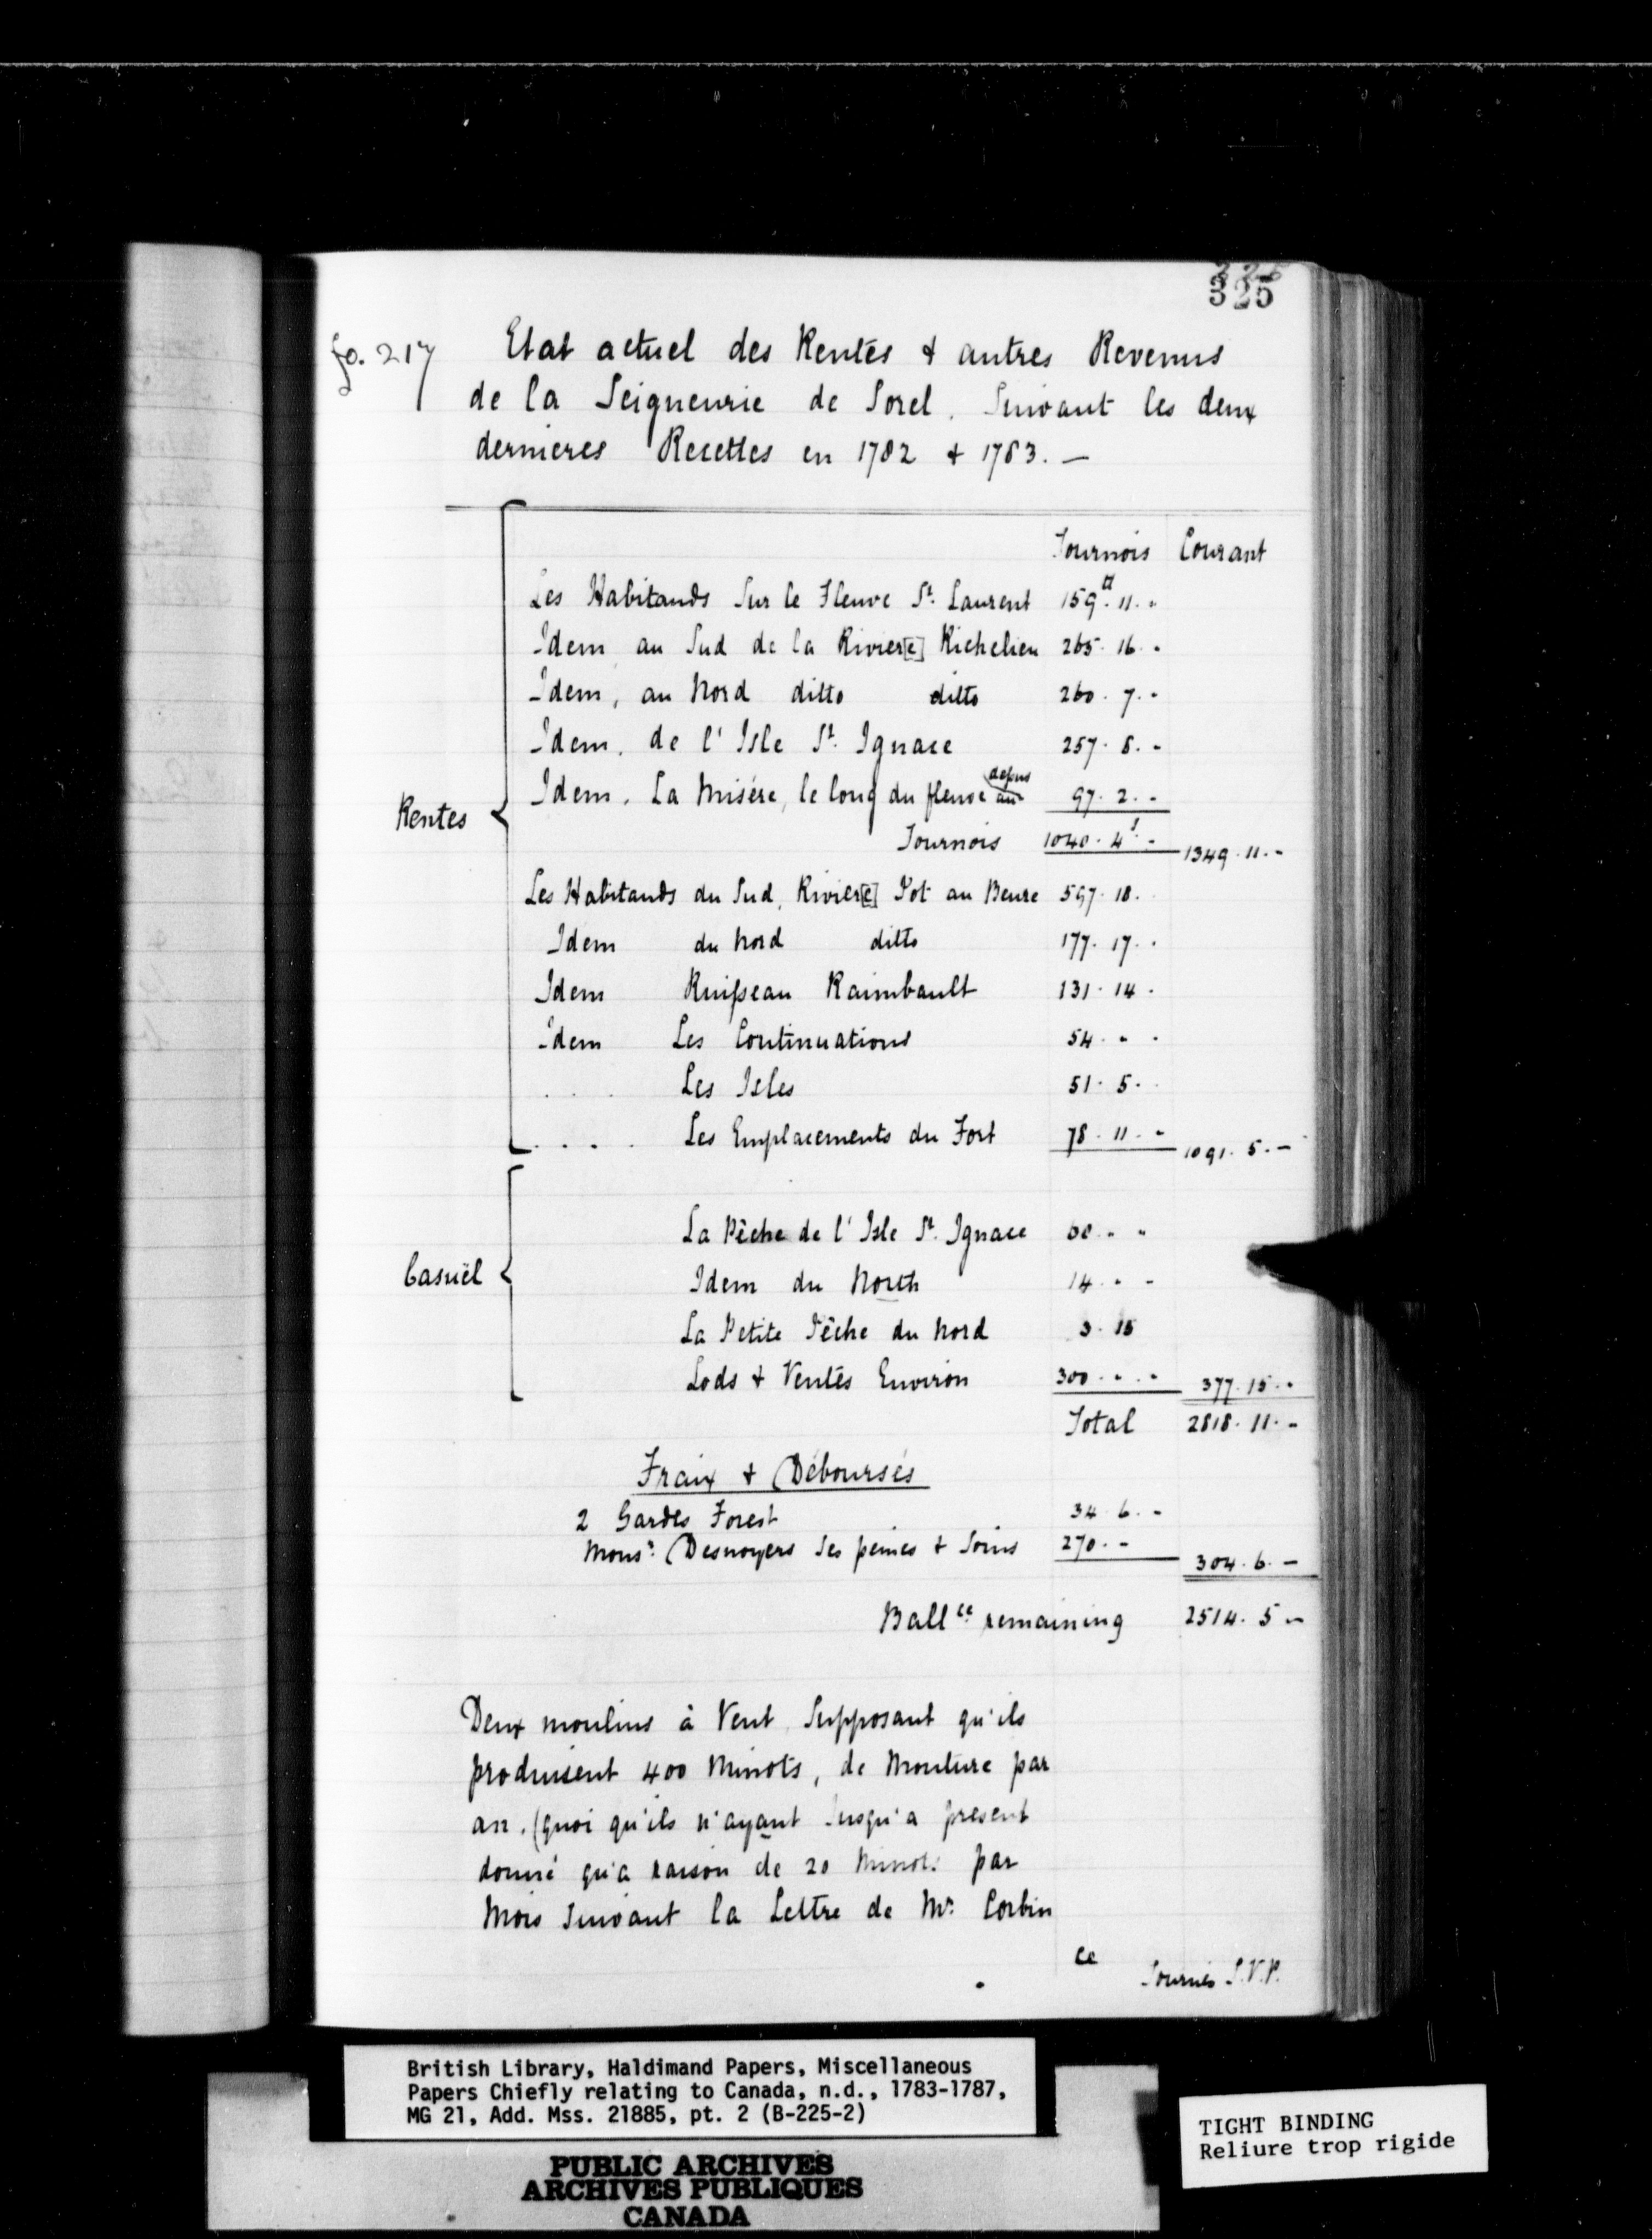 325
fo. 217 Etat actuel des Rentes & autres Revenus
de la Seigneurie de Sorel. Suivant les deux
dernieres Recettes en 1782 & 1783. —
Tournois Courant
Les Habitands Sur le Fleuve St. Laurent 159.# 11. -
Idem au Sud de la Rivier[e] Richelieu 265. 16. -
Idem, au Nord ditto ditto 260. 7. -
Idem. de l'Isle St. Ignace 257. 8. -
Idem. La Misére, le long du fleuve au depuis 97. 2. -
Rentes
Tournois 1040. 4s. - 1349. 11. -
Les Habitands du Sud, Rivier[e] Pot au Beure 597. 18.
Idem du Nord ditto 177. 17. -
Idem Ruisseau Raimbault 131. 14.
Idem Les Continuations 54. - -
. . . Les Isles 51. 5.
. . . . Les Emplacements du Fort 78. 11. - 1091. 5. -
La Pêche de l'Isle St. Ignace 60. - -
Casuël Idem du North 14. - -
La Petite Pêche du Nord 3. 15
Lods & Ventes Environ 300. - - 377. 15. -
Total 2818. 11. -
Fraix & Déboursés
2 Gardes Forest 34. 6. -
Monsr. Desnoyers Ses peines & Soins 270. - 304. 6. -
Ballce. remaining 2514. 5 -
Deux moulins à Vent Supposant qu'ils
produisent 400 Minots, de Mouture par
an. (quoi qu'ils n'ayant Jusqu'a present
donné qu'a raison de 20 Minots par
Mois Suivant la Lettre de Mr. Corbin
ce
Tournés S.V.P.
British Library, Haldimand Papers, Miscellaneous
Papers Chiefly relating to Canada, n.d., 1783-1787,
MG 21, Add. Mss. 21885, pt. 2 (B-225-2)
TIGHT BINDING
Reliure trop rigide
PUBLIC ARCHIVES
ARCHIVES PUBLIQUES
CANADA